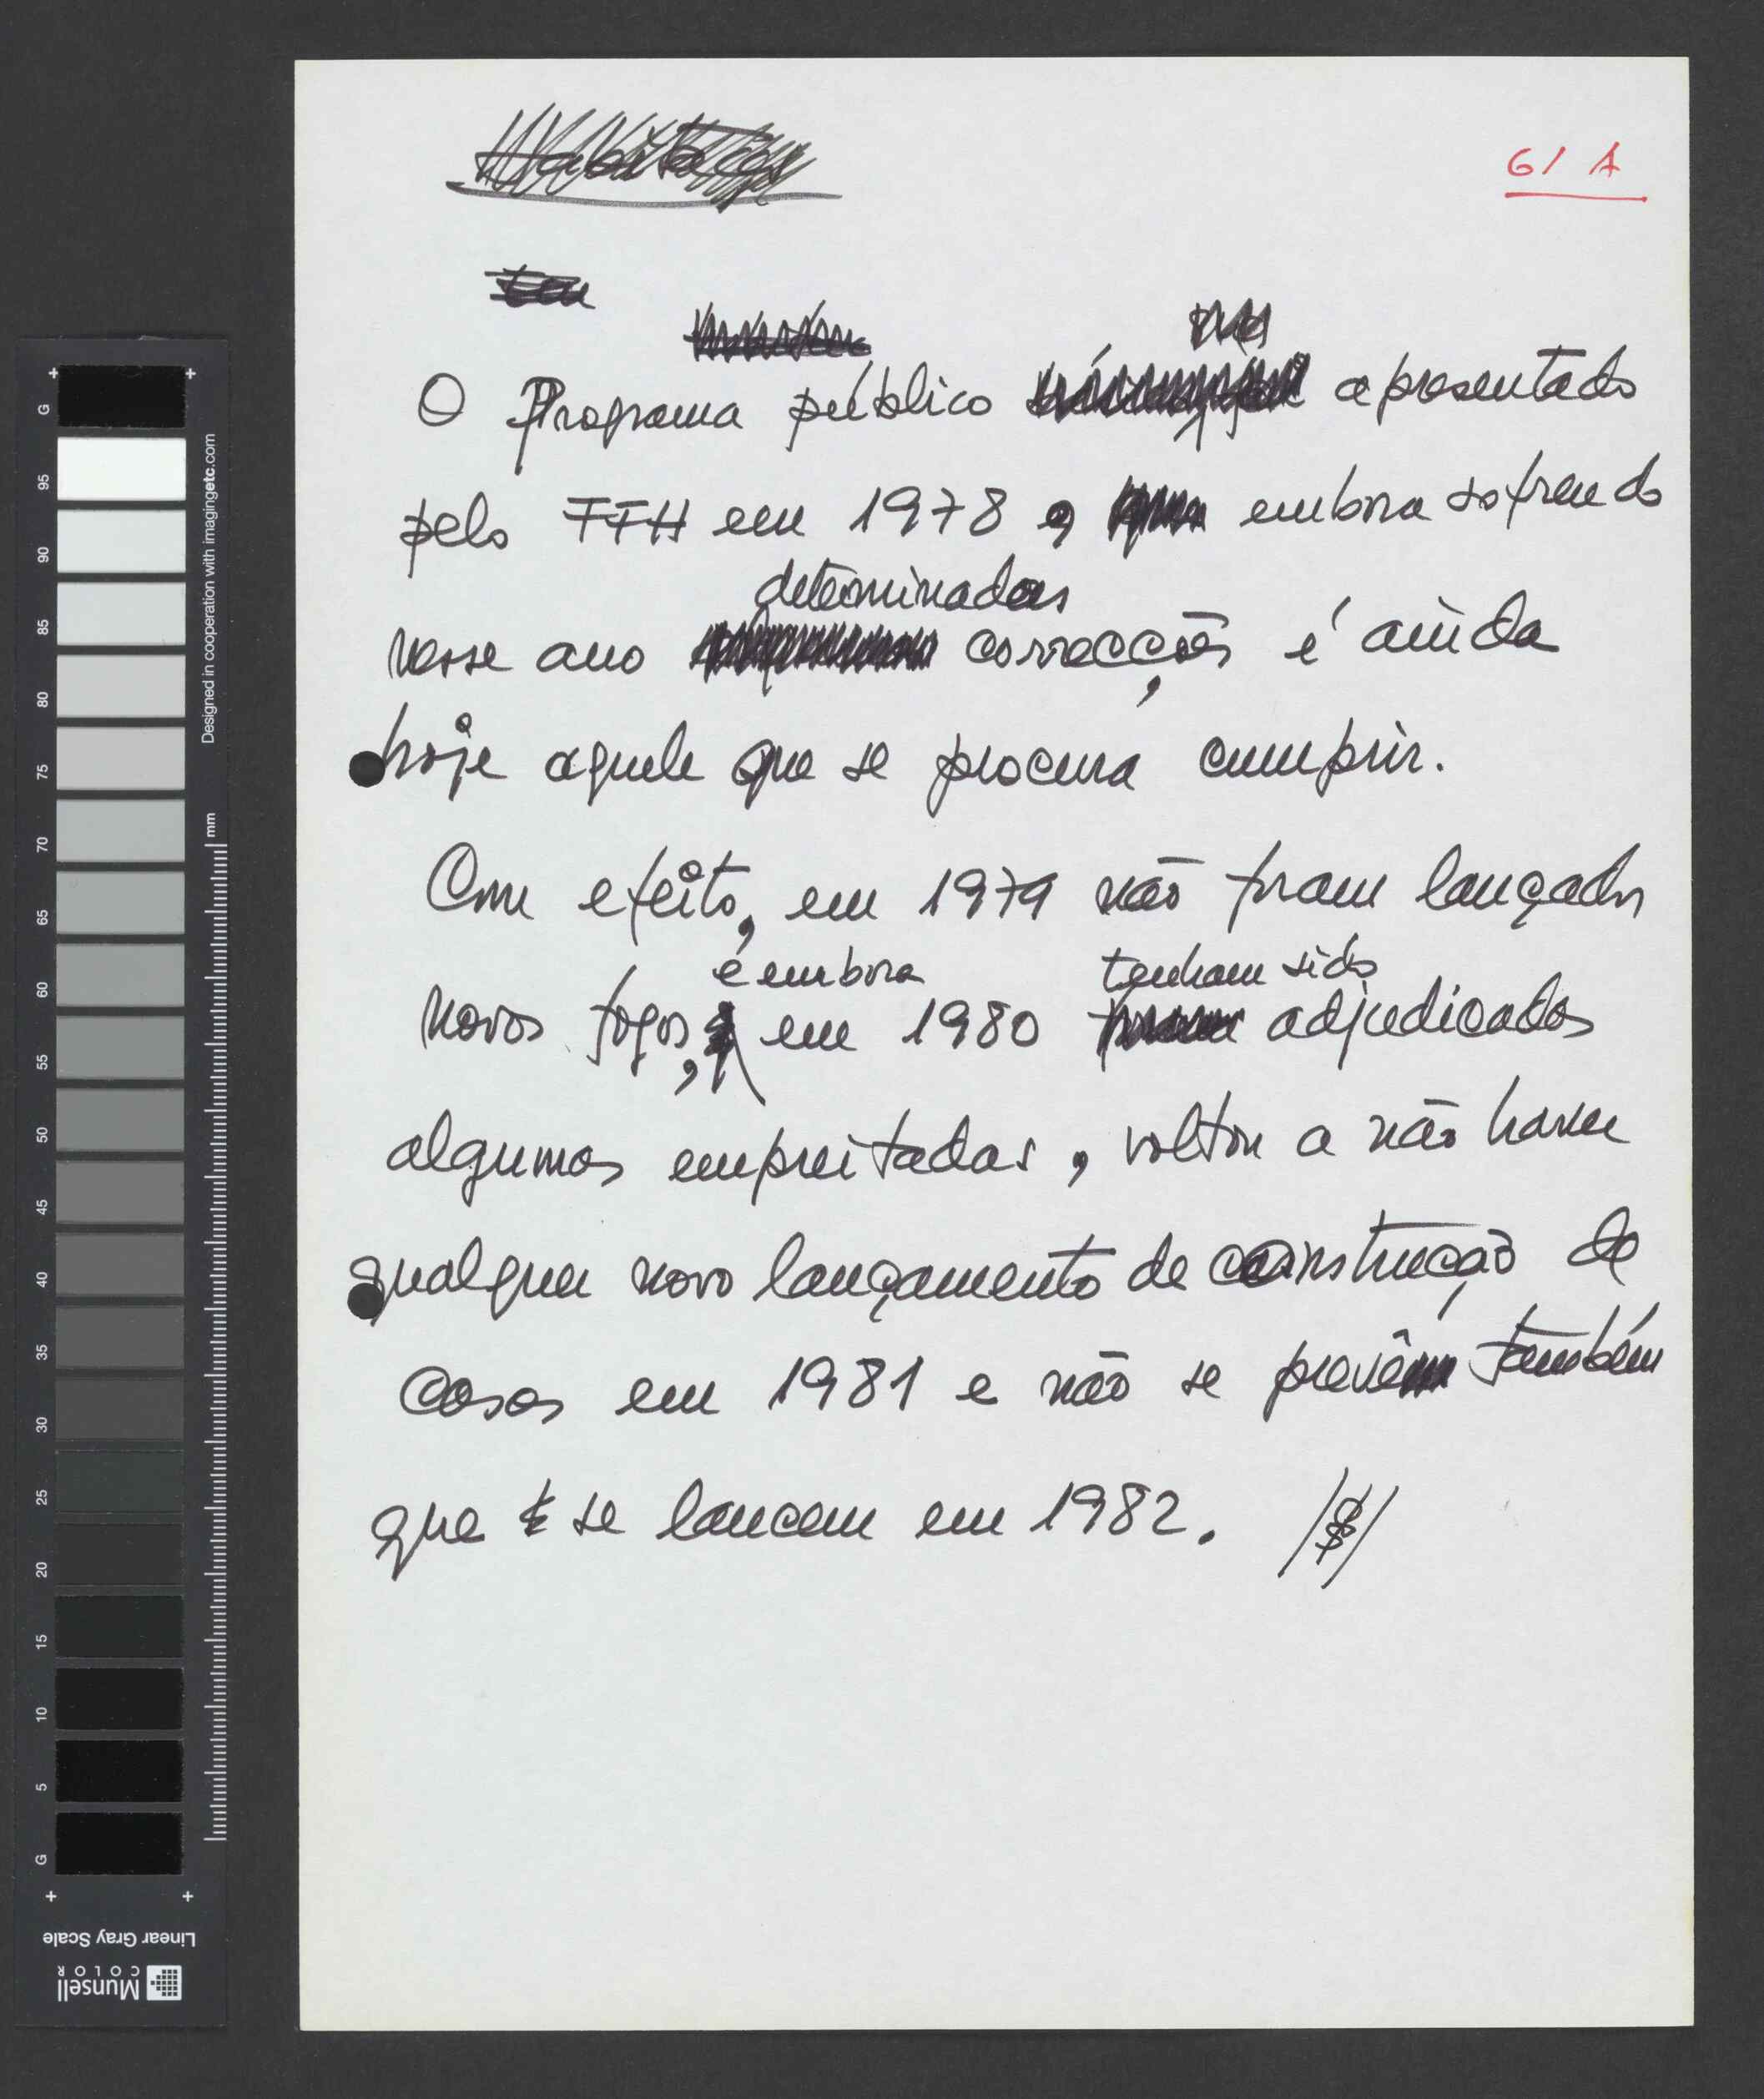 Habitação
61 A
O Programa público apresentado
pelo FFH em 1978, embora sofrendo
determinadas
nesse ano correcções, é ainda
hoje aquele que se procura cumprir.
Com efeito, em 1979 não foram lançados
e embora tenham sido
novos fogos, em 1980 foram adjudicados
algumas empreitadas, voltou a não haver
qualquer novo lançamento de construção de
casas em 1981 e não se prevê também
que se lancem em 1982. /$/
G
95
90
85
80
75
70
65
60
55
50
45
40
35
30
25
20
15
10
5
G
Designed in cooperation with imagingetc.com
mm
Linear Gray Scale
Munsell
COLOR